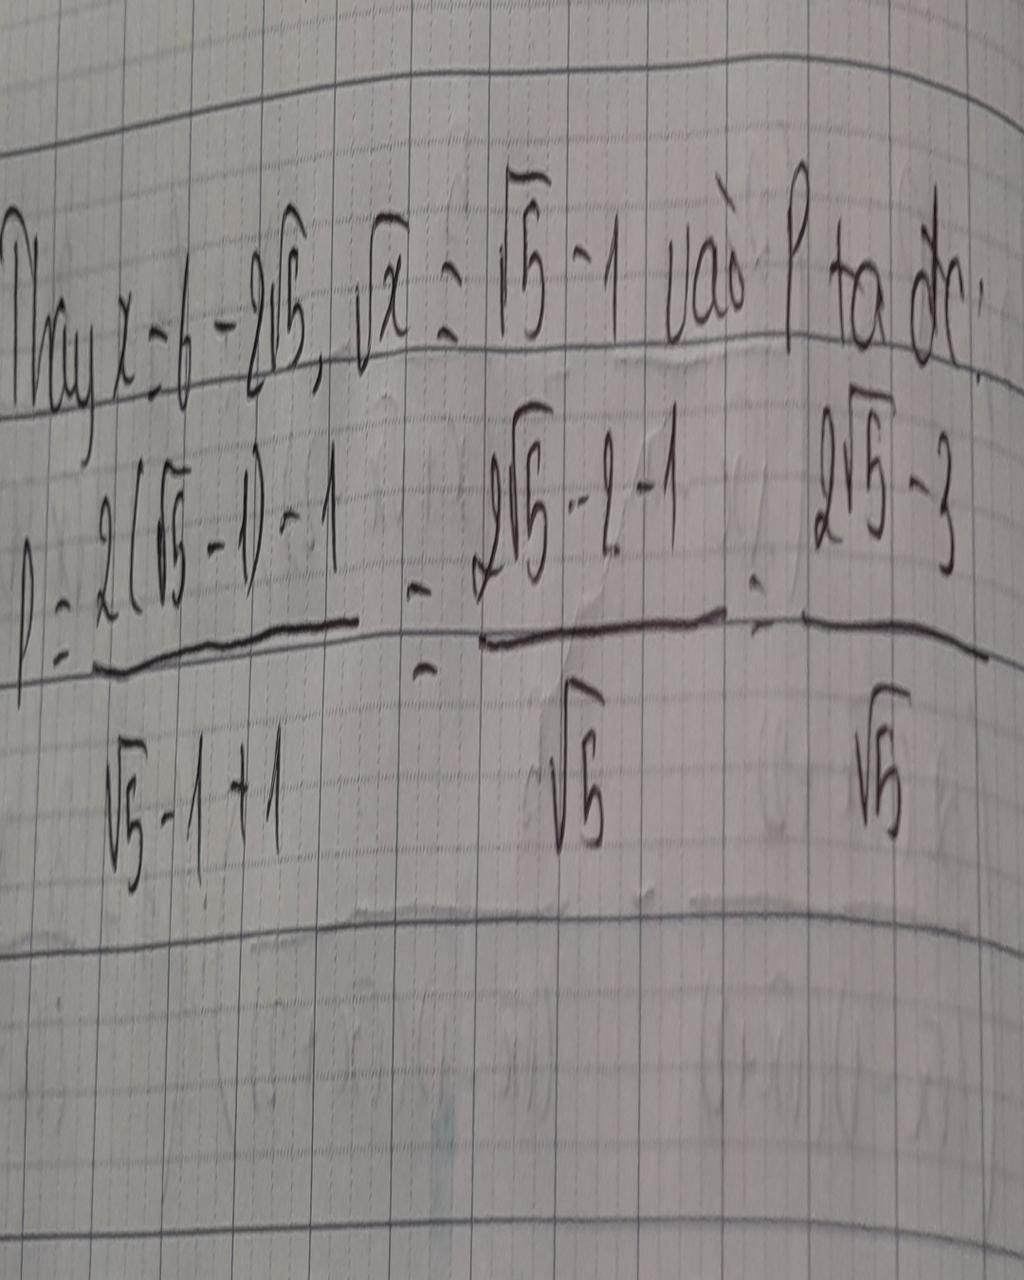 Thay x = 6 - 2√5, √x = √5 - 1 vào P ta đc:
P = (2(√5 - 1) - 1)/(√5 - 1 + 1) = (2√5 - 2 - 1)/√5 = (2√5 - 3)/√5